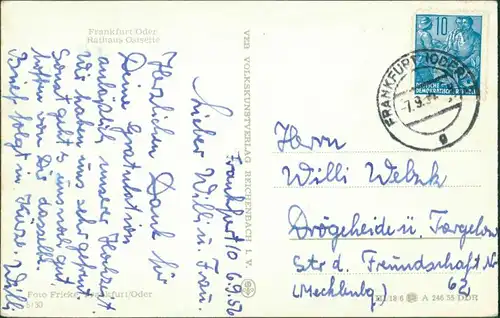 Frankfurt/Oder
Rathaus Ostseite
Frankfurt/O 6.9.56
Lieber Willi u. Frau.
Herzlichen Dank für
Deine Gratulation
anläßlich unserer Hochzeit
Wir haben uns sehr gefreut.
Sonst geht's uns noch gut,
hoffen von Dir dasselbe.
Brief folgt in Kürze. Willi
Foto Fricke, Frankfurt/Oder
VEB VOLKSKUNSTVERLAG REICHENBACH I. V.
10
DEUTSCHE
DEMOKRATISCHE
FRANKFURT (ODER)
-7.9.
g
Herrn
Willi Welsk
Drögeheide ü. Torgelow
Str d. Freundschaft Nr
62
(Mecklenbg)
A 246 55 DDR